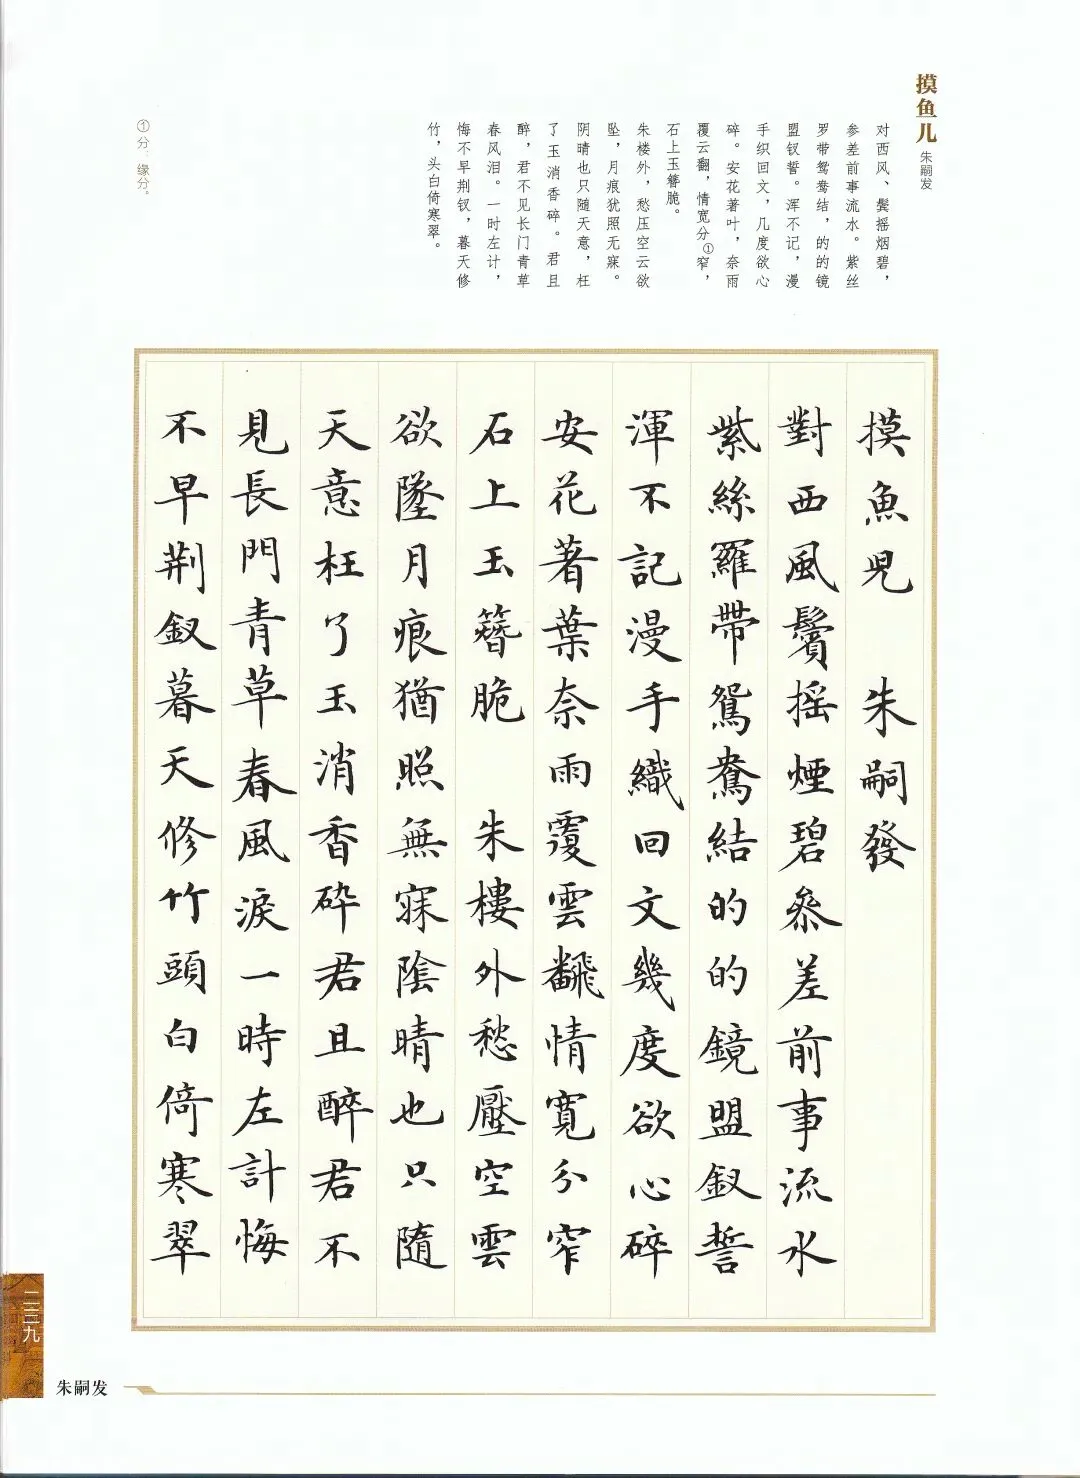 摸鱼儿
朱嗣发
对西风、鬓摇烟碧，
参差前事流水。紫丝
罗带鸳鸯结，的的镜
盟钗誓。浑不记，漫
手织回文，几度欲心
碎。安花著叶，奈雨
覆云翻，情宽分①窄，
石上玉簪脆。
朱楼外，愁压空云欲
坠，月痕犹照无寐。
阴晴也只随天意，枉
了玉消香碎。君且
醉，君不见长门青草
春风泪。一时左计，
悔不早荆钗，暮天修
竹，头白倚寒翠。
①分：缘分。
摸魚児 朱嗣發
對西風鬢摇煙碧叅差前事流水
紫絲羅帶鴛鴦結的的鏡盟釵誓
渾不記漫手織回文幾度欲心碎
安花著葉奈雨覆雲飜情寬分窄
石上玉簪脆 朱樓外愁壓空雲
欲墜月痕猶照無寐陰晴也只隨
天意枉了玉消香碎君且醉君不
見長門青草春風淚一時左計悔
不早荆釵暮天修竹頭白倚寒翠
二三九
朱嗣发